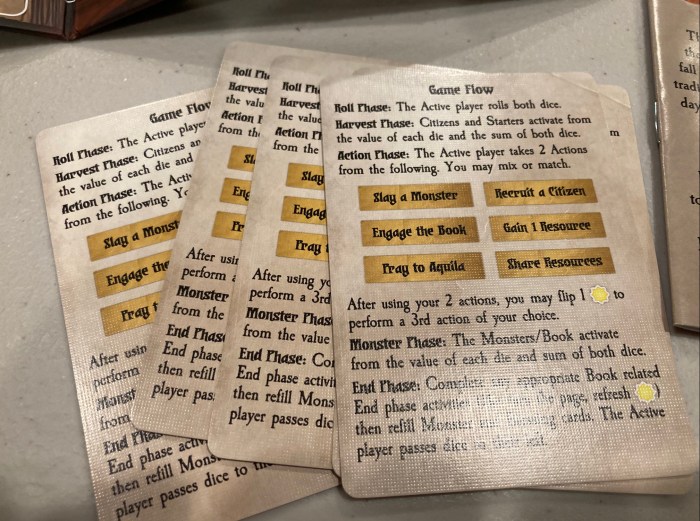 Game Flow
Roll Phase: The Active player rolls both dice.
Harvest Phase: Citizens and Starters activate from
the value of each die and the sum of both dice.
m
Action Phase: The Active player takes 2 Actions
from the following. You may mix or match.
Slay a Monster
Recruit a Citizen
Engage the Book
Gain 1 Resource
Pray to Aquila
Share Resources
After using your 2 actions, you may flip 1 to
perform a 3rd action of your choice.
Monster Phase: The Monsters/Book activate
from the value of each die and sum of both dice.
End Phase: Complete any appropriate Book related
End phase activities the page, refresh )
then refill Monster and cards. The Active
player passes dice to their
Game Flow
Roll Phase: The Active playe
Harvest Phase: Citizens an
the value of each die and
Action Phase: The Acti
from the following. Y
Slay a Monst
Engage the
Pray t
After usin
perform
Monst
from
End Pha
End phase activ
then refill Mons
player passes dice to th
Roll Ph
Harvest
the valu
Action
from th
Sl
Eng
Pr
After usi
perform
Monster
from the
End Phas
End phase
then refill
player pas
Roll Ph
Harvest
the valu
Action P
from the
Slay
Engag
Pray
After using yo
perform a 3rd
Monster Phas
from the value
End Phase: Co
End phase activi
then refill Mons
player passes dic
Th
the
fall
tradi
day
to